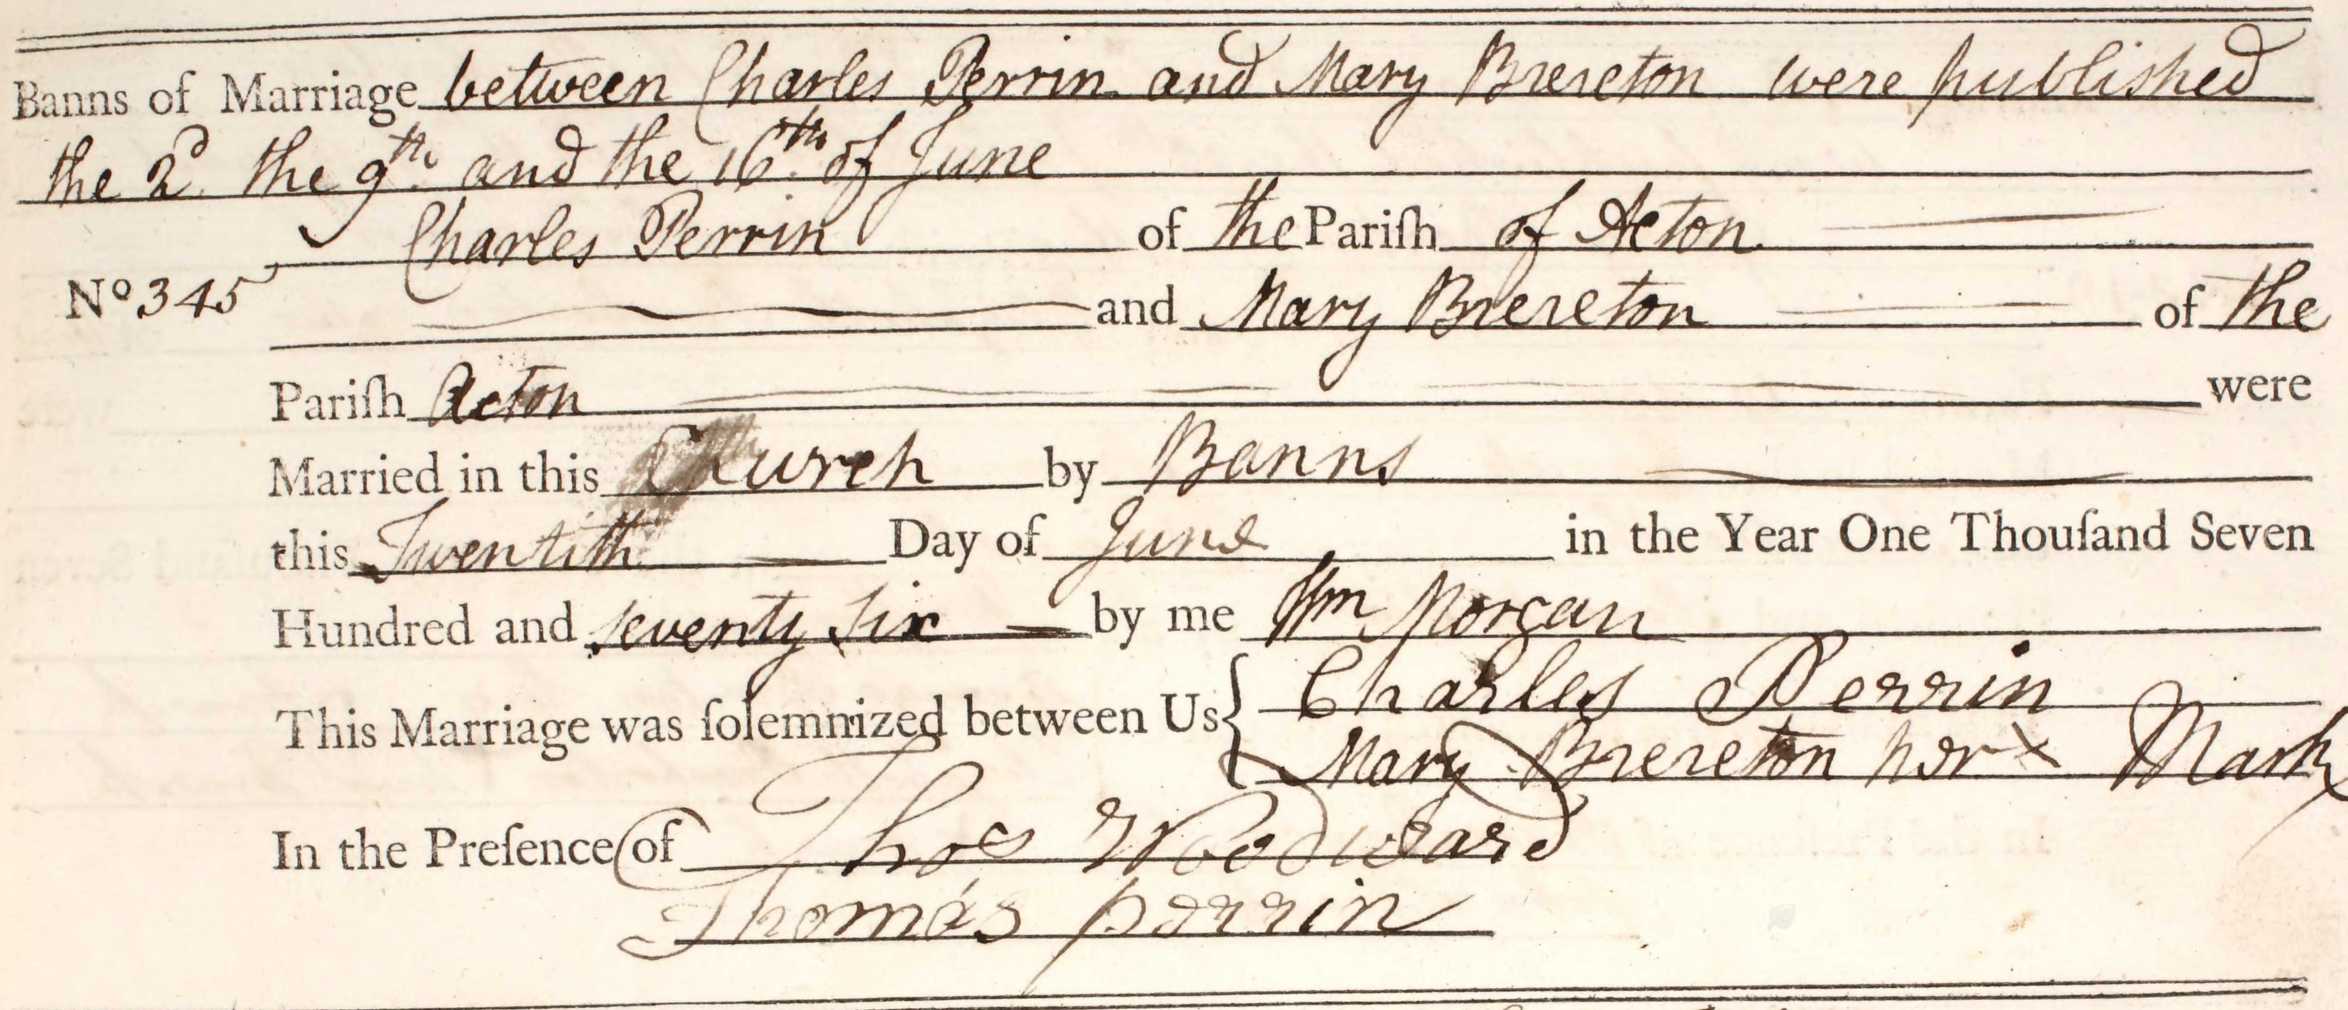 Banns of Marriage between Charles Perrin and Mary Brereton were published
the 2d. the 9th. and the 16th. of June
Charles Perrin of the Pariſh of Acton
No 345 and Mary Brereton of the
Pariſh Acton were
Married in this Church by Banns
this Twentith Day of June in the Year One Thouſand Seven
Hundred and seventy six by me Wm Morgan
This Marriage was ſolemnized between Us { Charles Perrin
Mary Brereton her x Mark
In the Preſence of Thos Woodward
Thomas perrin